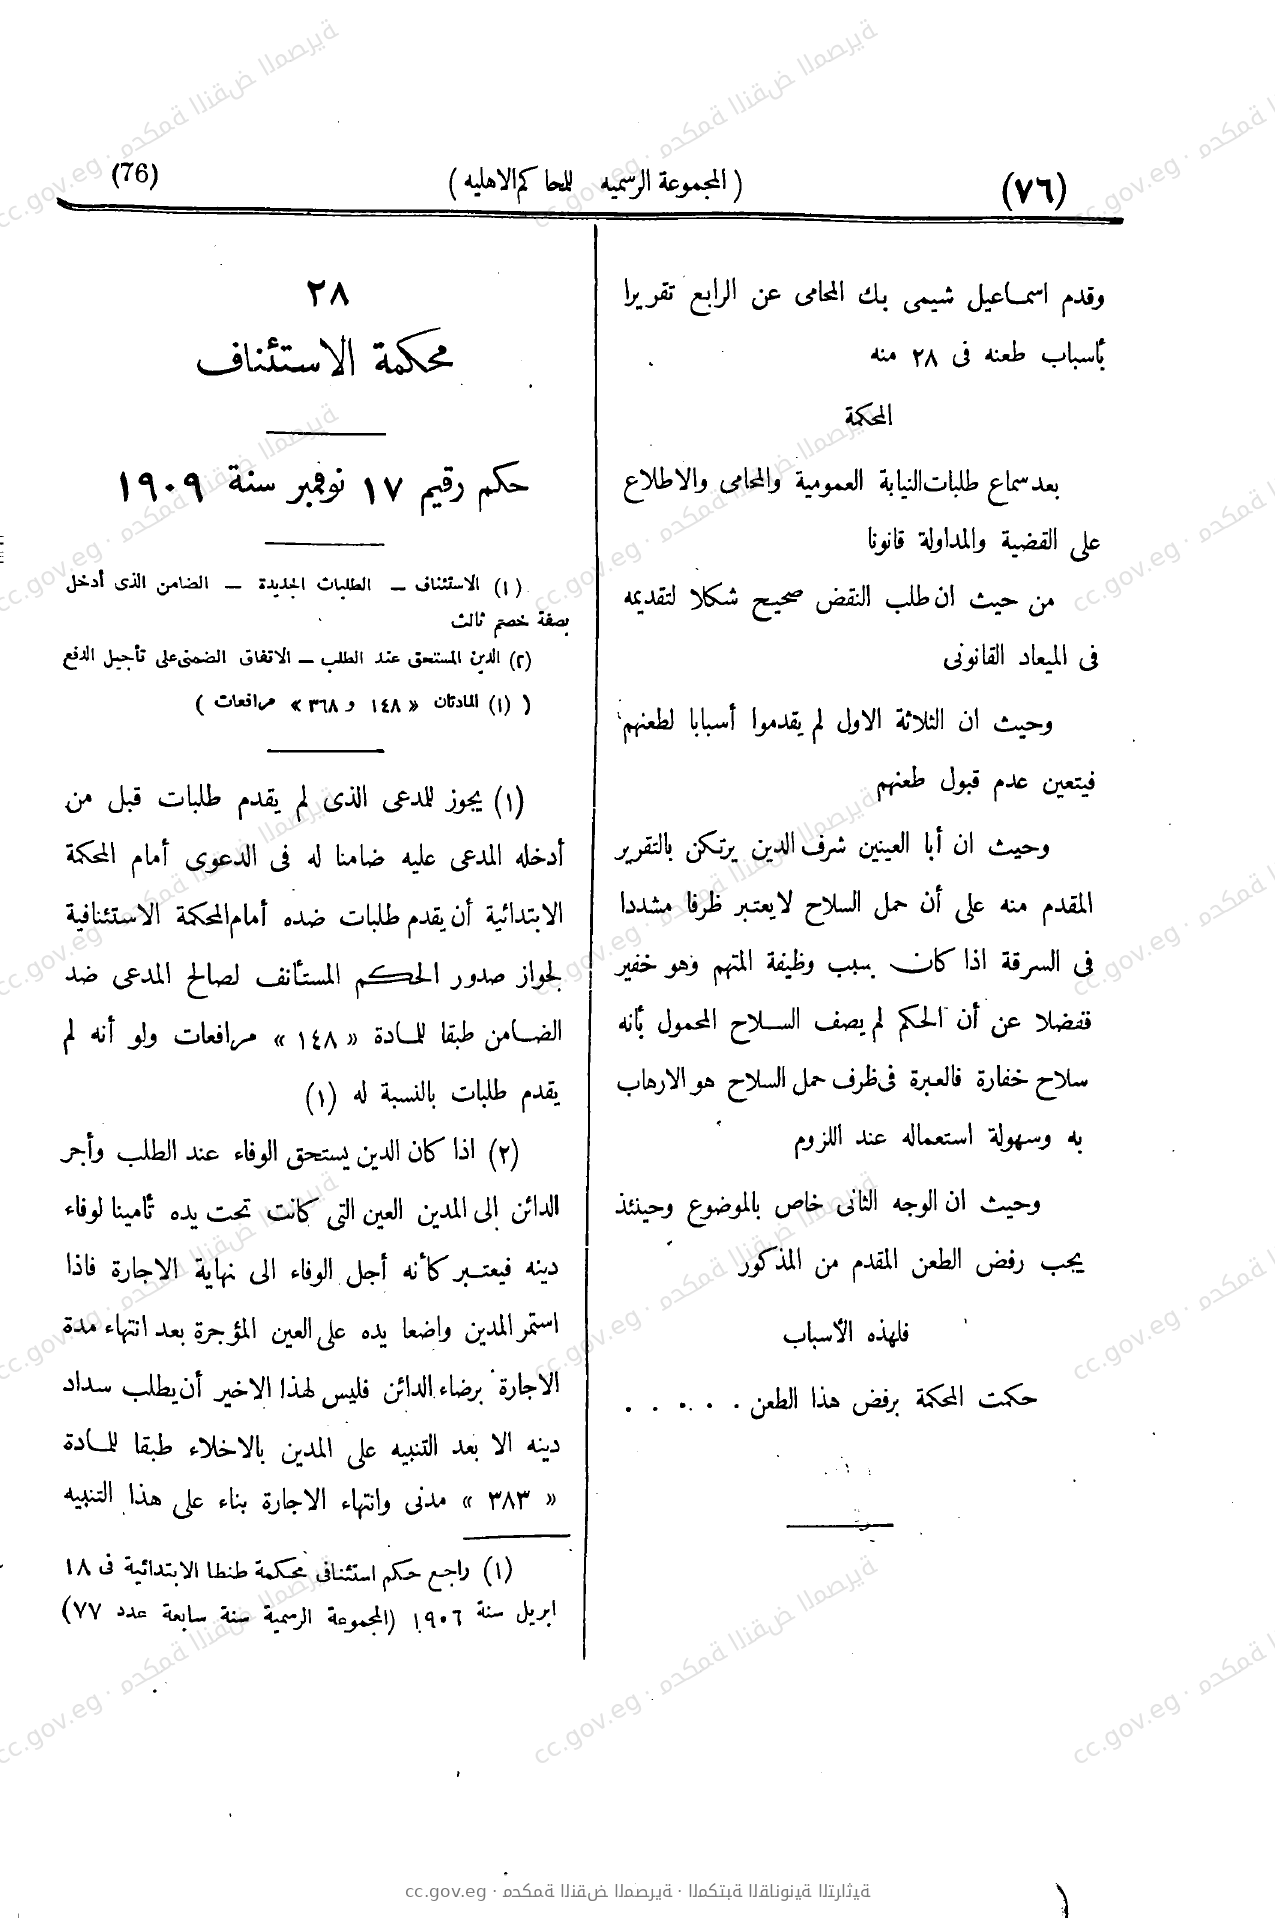 (٧٦)
( المجموعة الرسميه للمحاكم الاهليه )
(76)
وقدم اسماعيل شيمى بك المحامى عن الرابع تقريرا
بأسباب طعنه فى ٢٨ منه
المحكمة
بعد سماع طلبات النيابة العمومية والمحامى والاطلاع
على القضية والمداولة قانونا
من حيث ان طلب النقض صحيح شكلا لتقديمه
فى الميعاد القانونى
وحيث ان الثلاثة الاول لم يقدموا أسبابا لطعنهم
فيتعين عدم قبول طعنهم
وحيث ان أبا العينين شرف الدين يرتكن بالتقرير
المقدم منه على أن حمل السلاح لا يعتبر ظرفا مشددا
فى السرقة اذا كان بسبب وظيفة المتهم وهو خفير
ففضلا عن أن الحكم لم يصف السلاح المحمول بأنه
سلاح خفارة فالعبرة فى ظرف حمل السلاح هو الارهاب
به وسهولة استعماله عند اللزوم
وحيث ان الوجه الثانى خاص بالموضوع وحينئذ
يجب رفض الطعن المقدم من المذكور
فلهذه الأسباب
حكمت المحكمة برفض هذا الطعن . . . . .
٢٨
محكمة الاستئناف
حكم رقيم ١٧ نوفمبر سنة ١٩٠٩
(١) الاستئناف — الطلبات الجديدة — الضامن الذى أدخل
بصفة خصم ثالث
(٢) الدين المستحق عند الطلب — الاتفاق الضمنى على تأجيل الدفع
( (١) المادتان « ١٤٨ و ٣٦٨ » مرافعات )
(١) يجوز للمدعى الذى لم يقدم طلبات قبل من
أدخله المدعى عليه ضامنا له فى الدعوى أمام المحكمة
الابتدائية أن يقدم طلبات ضده أمام المحكمة الاستئنافية
لجواز صدور الحكم المستأنف لصالح المدعى ضد
الضامن طبقا للمادة « ١٤٨ » مرافعات ولو أنه لم
يقدم طلبات بالنسبة له (١)
(٢) اذا كان الدين يستحق الوفاء عند الطلب وأجر
الدائن إلى المدين العين التى كانت تحت يده تأمينا لوفاء
دينه فيعتبر كأنه أجل الوفاء الى نهاية الاجارة فاذا
استمر المدين واضعا يده على العين المؤجرة بعد انتهاء مدة
الاجارة برضاء الدائن فليس لهذا الاخير أن يطلب سداد
دينه الا بعد التنبيه على المدين بالاخلاء طبقا للمادة
« ٣٨٣ » مدنى وانتهاء الاجارة بناء على هذا التنبيه
(١) راجع حكم استئنافى محكمة طنطا الابتدائية فى ١٨
ابريل سنة ١٩٠٦ (المجموعة الرسمية سنة سابعة عدد ٧٧)
cc.gov.eg · محكمة النقض المصرية · المكتبة القانونية التراثية